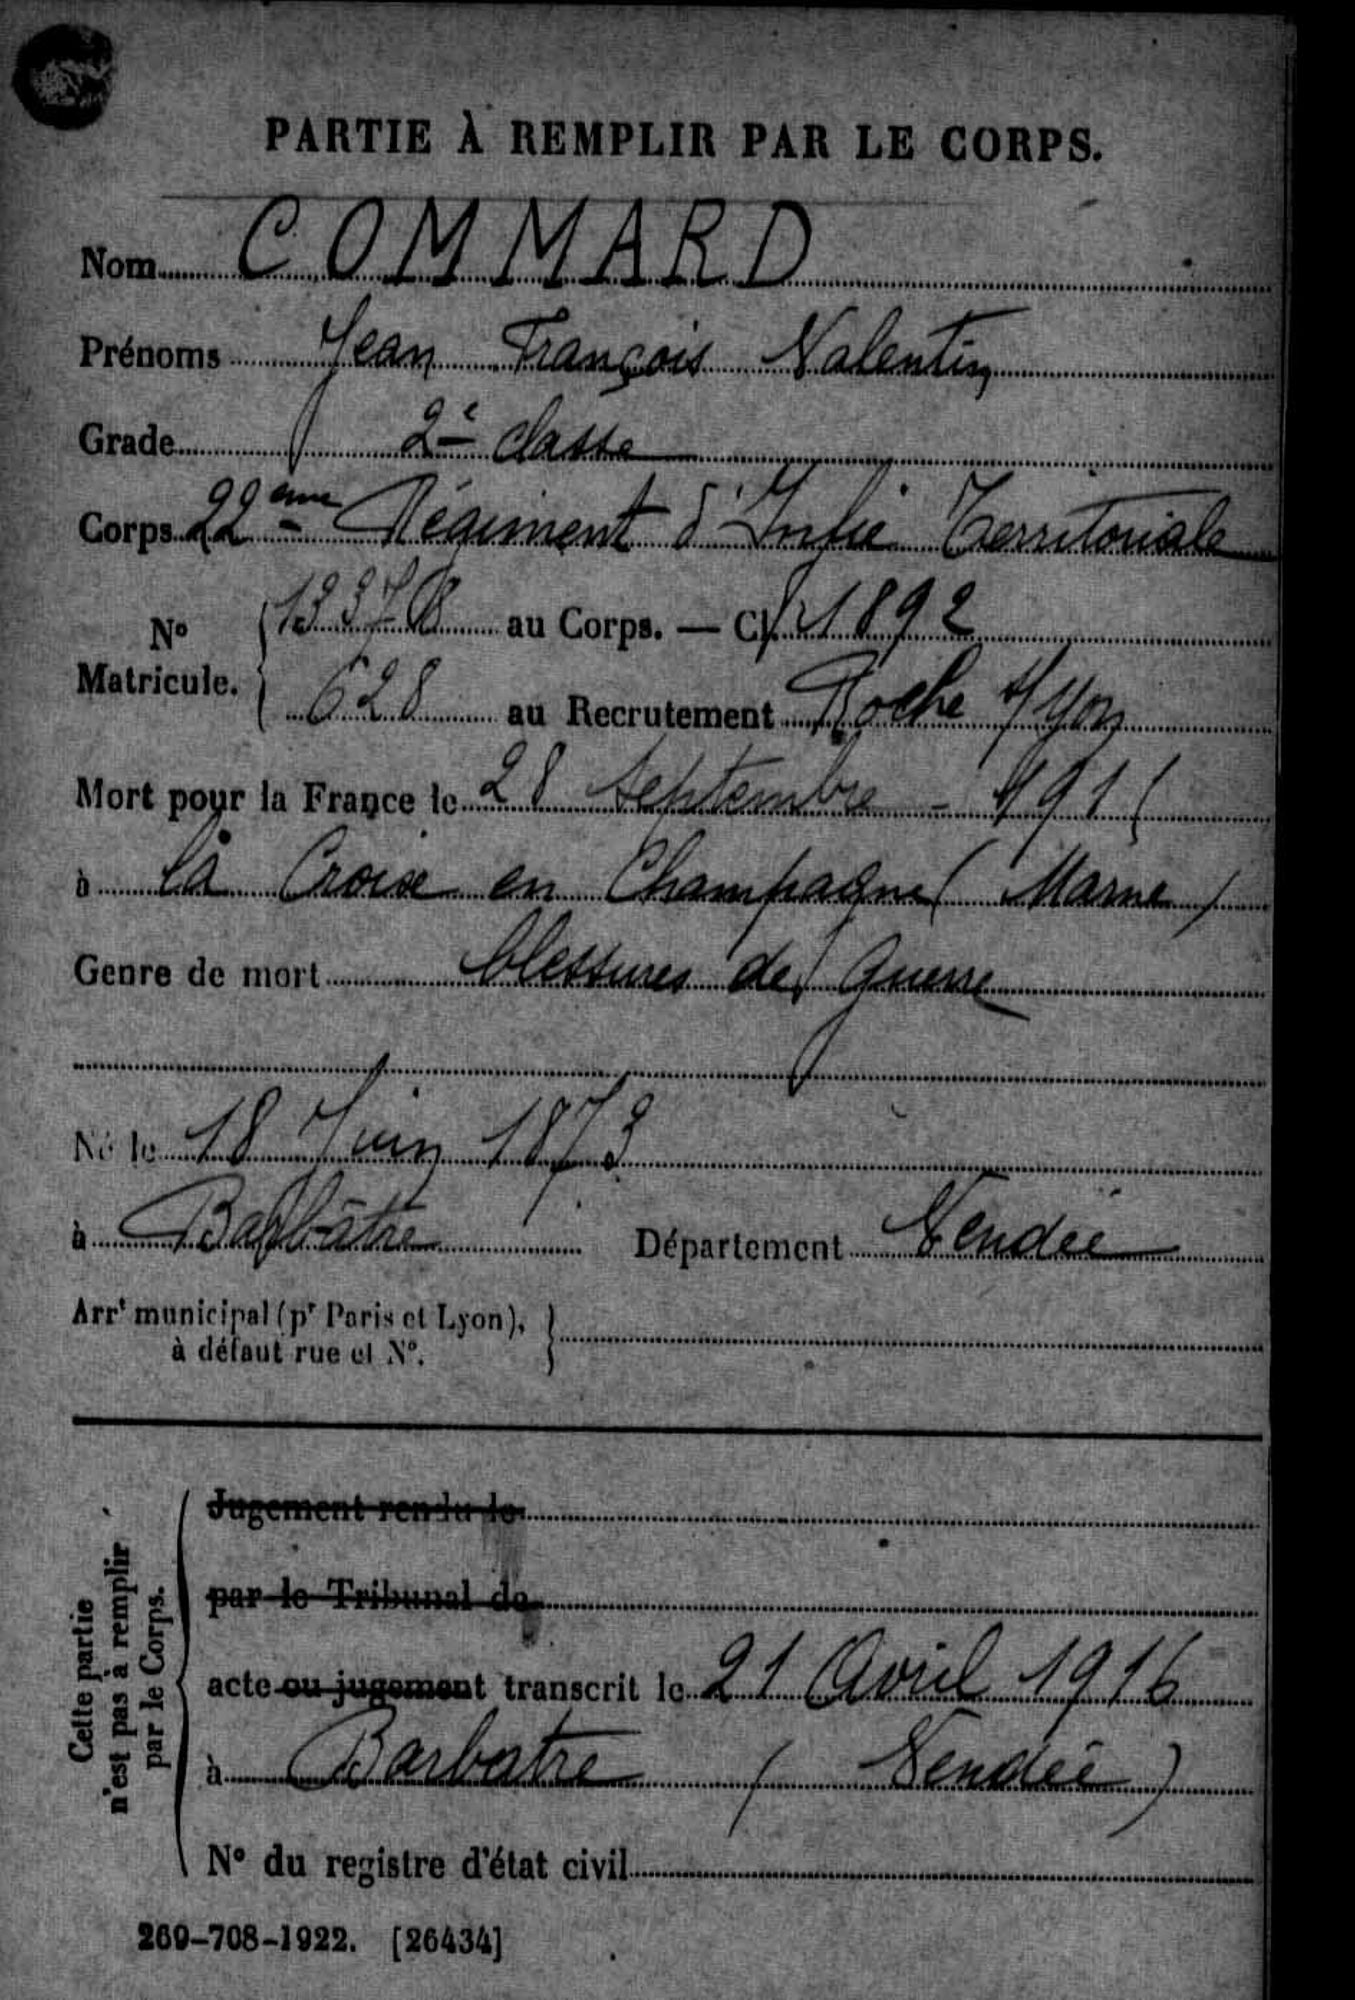 PARTIE À REMPLIR PAR LE CORPS.
Nom COMMARD
Prénoms Jean François Valentin
Grade 2e classe
Corps 22ème Régiment d'Infie Territoriale
No 1337B au Corps. — Cl. 1892
Matricule. 628 au Recrutement Roche s/yon
Mort pour la France le 28 septembre - 1915
à la Croix en Champagne (Marne)
Genre de mort blessures de Guerre
Né le 18 Juin 1873
à Barbâtre Département Vendée
Arrt municipal (pr Paris et Lyon),
à défaut rue et No.
Cette partie
n'est pas à remplir
par le Corps.
Jugement rendu le
par le Tribunal de
acte ou jugement transcrit le 21 Avril 1916
à Barbatre (Vendée)
No du registre d'état civil
269-708-1922. [26434]